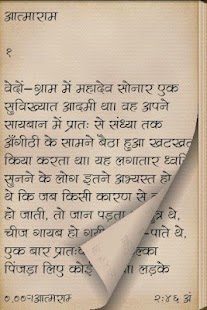 आत्माराम
१
वेदों-ग्राम में महादेव सोनार एक
सुविख्यात आदमी था। वह अपने
सायबान में प्रातः से संध्या तक
अँगीठी के सामने बैठा हुआ खटखट
किया करता था। यह लगातार ध्वनि
सुनने के लोग इतने अभ्यस्त हो
थे कि जब किसी कारण से
हो जाती, तो जान पड़ता था,
चीज गायब हो गयी
एक बार प्रातः
पिंजड़ा लिए कोई
०.००%आत्माराम
२:४६ अं